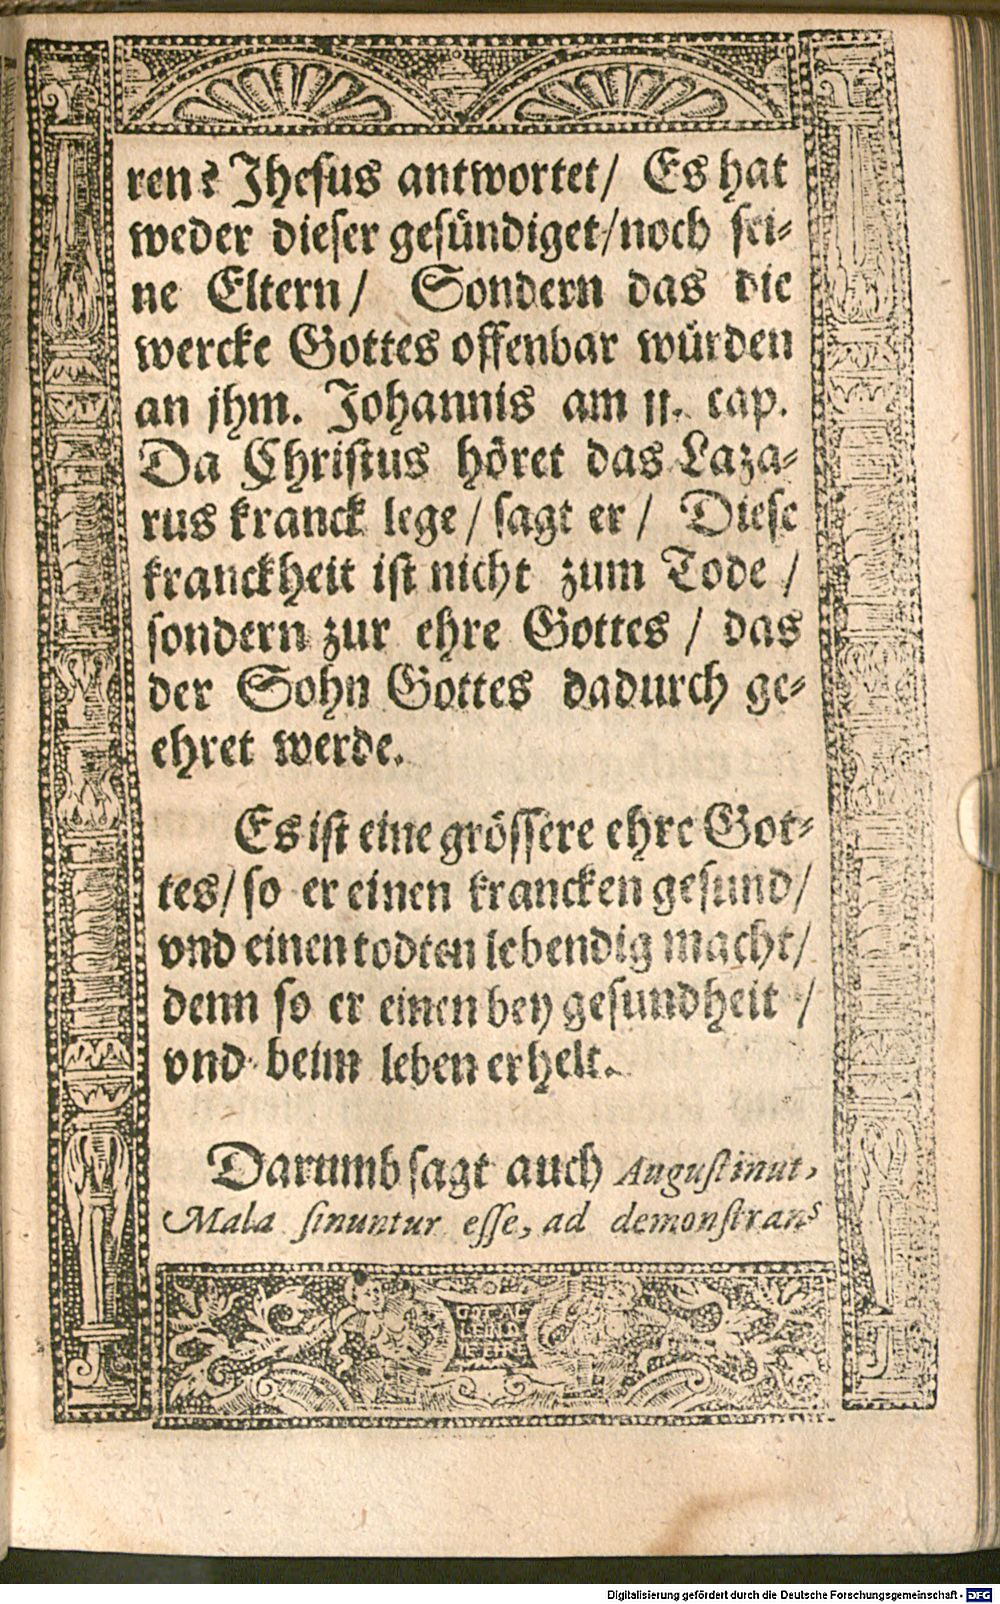 ren? Jhesus antwortet/ Es hat
weder dieser gesündiget/noch sei-
ne Eltern/ Sondern das die
wercke Gottes offenbar würden
an jhm. Johannis am 11. cap.
Da Christus höret das Laza-
rus kranck lege/ sagt er/ Diese
kranckheit ist nicht zum Tode /
sondern zur ehre Gottes / das
der Sohn Gottes dadurch ge-
ehret werde.
Es ist eine grössere ehre Got-
tes/ so er einen krancken gesund/
vnd einen todten lebendig macht/
denn so er einen bey gesundheit /
vnd beim leben erhelt.
Darumb sagt auch Augustinut,
Mala sinuntur esse, ad demonstrans
GOT AL
LEIN D
IE EHRE
Digitalisierung gefördert durch die Deutsche Forschungsgemeinschaft - DFG